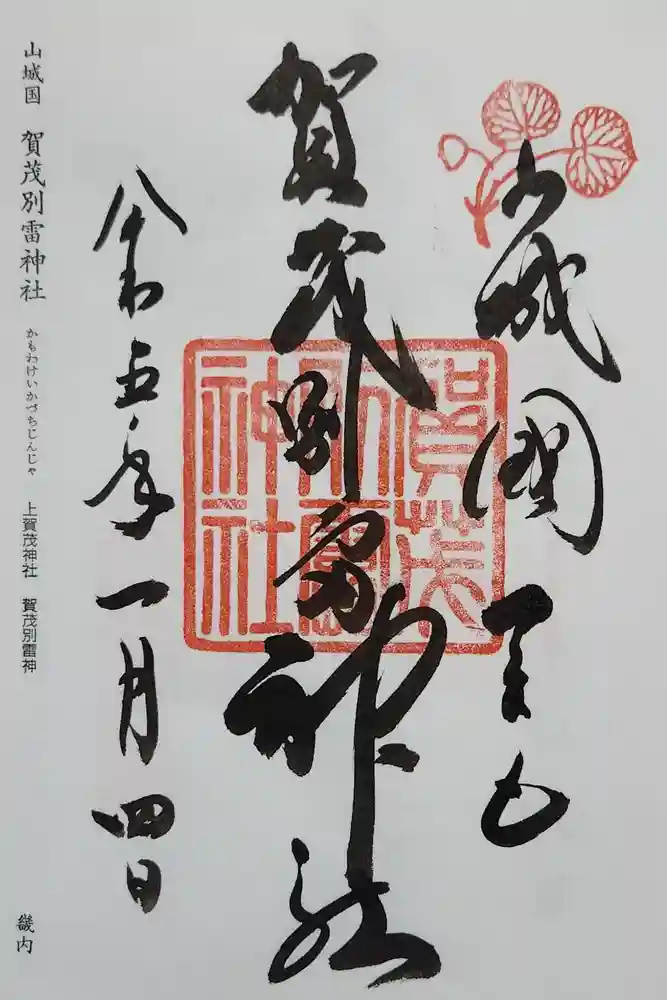 山城國
賀茂別雷神社
賀茂
別雷
神社
令和五年一月四日
山城国 賀茂別雷神社 かもわけいかづちじんじゃ 上賀茂神社 賀茂別雷神
畿内